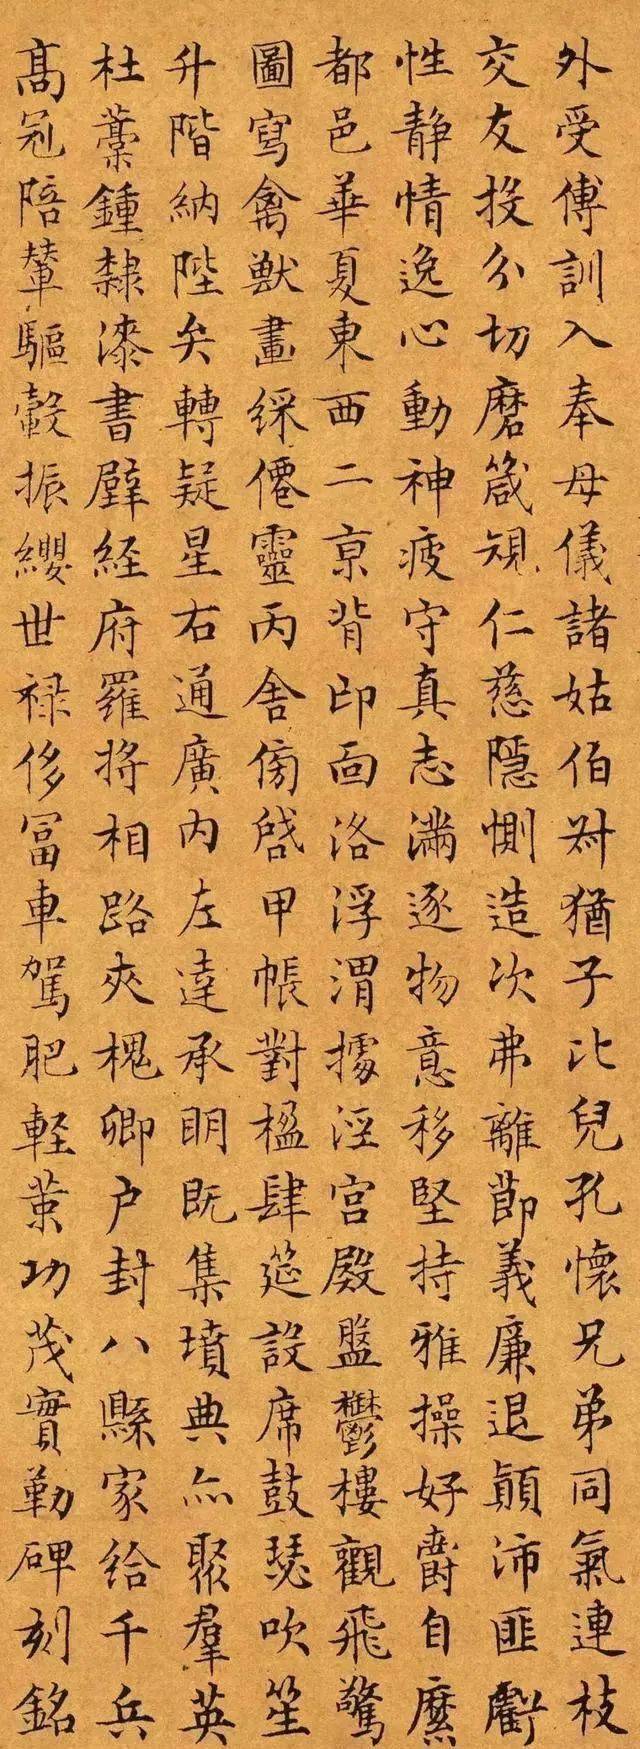 外受傅訓入奉母儀諸姑伯叔猶子比兒孔懷兄弟同氣連枝
交友投分切磨箴規仁慈隱惻造次弗離節義廉退顛沛匪虧
性静情逸心動神疲守真志滿逐物意移堅持雅操好爵自縻
都邑華夏東西二京背邙面洛浮渭據涇宮殿盤鬱樓觀飛驚
圖寫禽獸畫綵僊靈丙舍傍啓甲帳對楹肆筵設席鼓瑟吹笙
升階納陛弁轉疑星右通廣内左達承明既集墳典亦聚羣英
杜藁鍾隸漆書壁経府羅將相路夾槐卿户封八縣家給千兵
髙冠陪輦驅轂振纓世禄侈冨車駕肥軽策功茂實勒碑刻銘